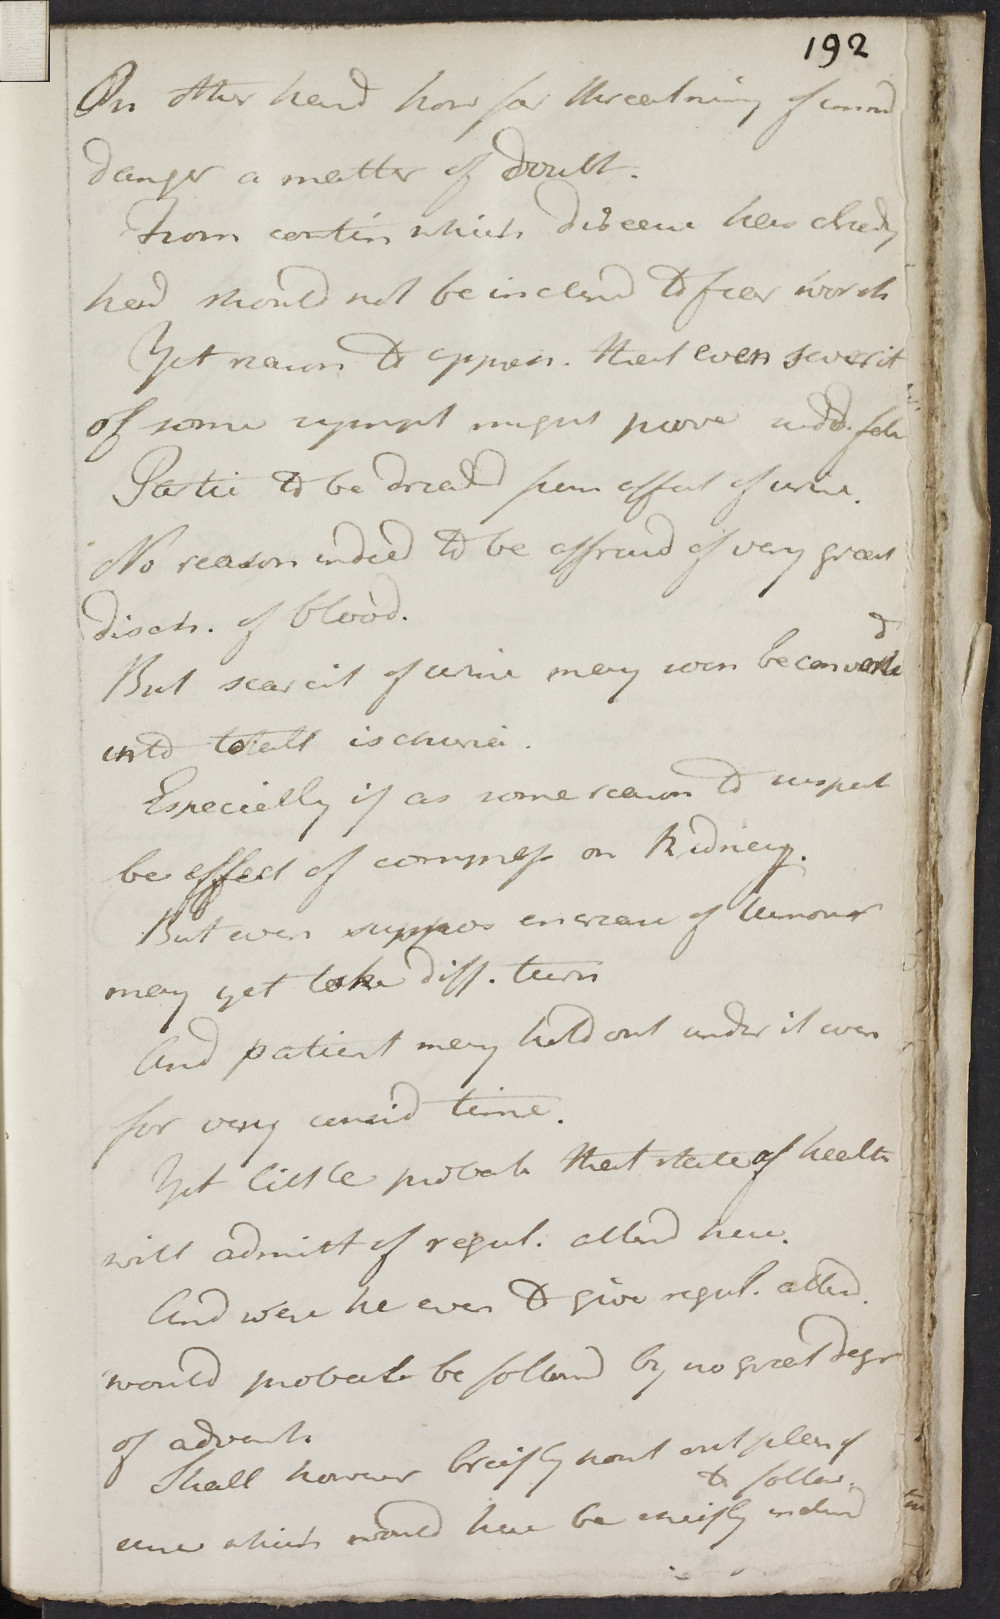 192
On other hand how far threatning of immd
danger a matter of doubt.
From contin which disease has alredy
had should not be inclend to fear worst
Yet reason to appreh. that even severit
of some sympt might prove sudd. fatal
Partic to be dreadd from effect of urine.
No reason indeed to be affraid of very great
disch. of blood.
But scarcit of urine may soon be converted
into totall ischuria.
Especially if as some reason to suspect
be effect of compress on Kidney.
But even suppos increase of tumour
may yet take diff. turn
And patient may hold out under it even
for very consid time.
Yet little probab that state of health
will admitt of regul. attend here.
And were he even to give regul. attend.
would probab be followd by no great degr
of advant.
Shall however briefly point out plan of
to follow.
cure which would here be chiefly inclend